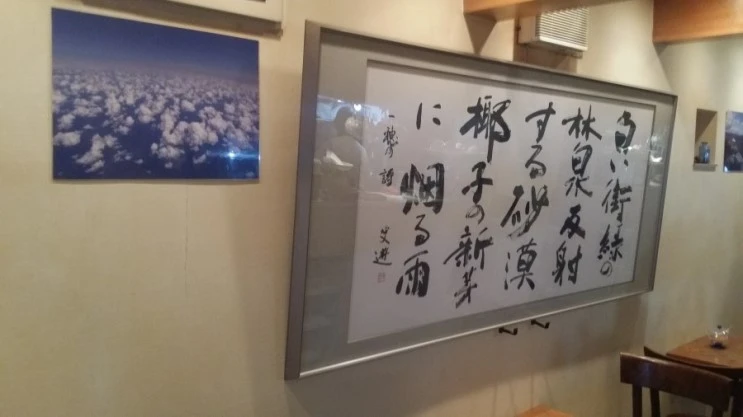 白い街緑の
林泉反射
する砂漠
椰子の新芽
に烟る雨
詩